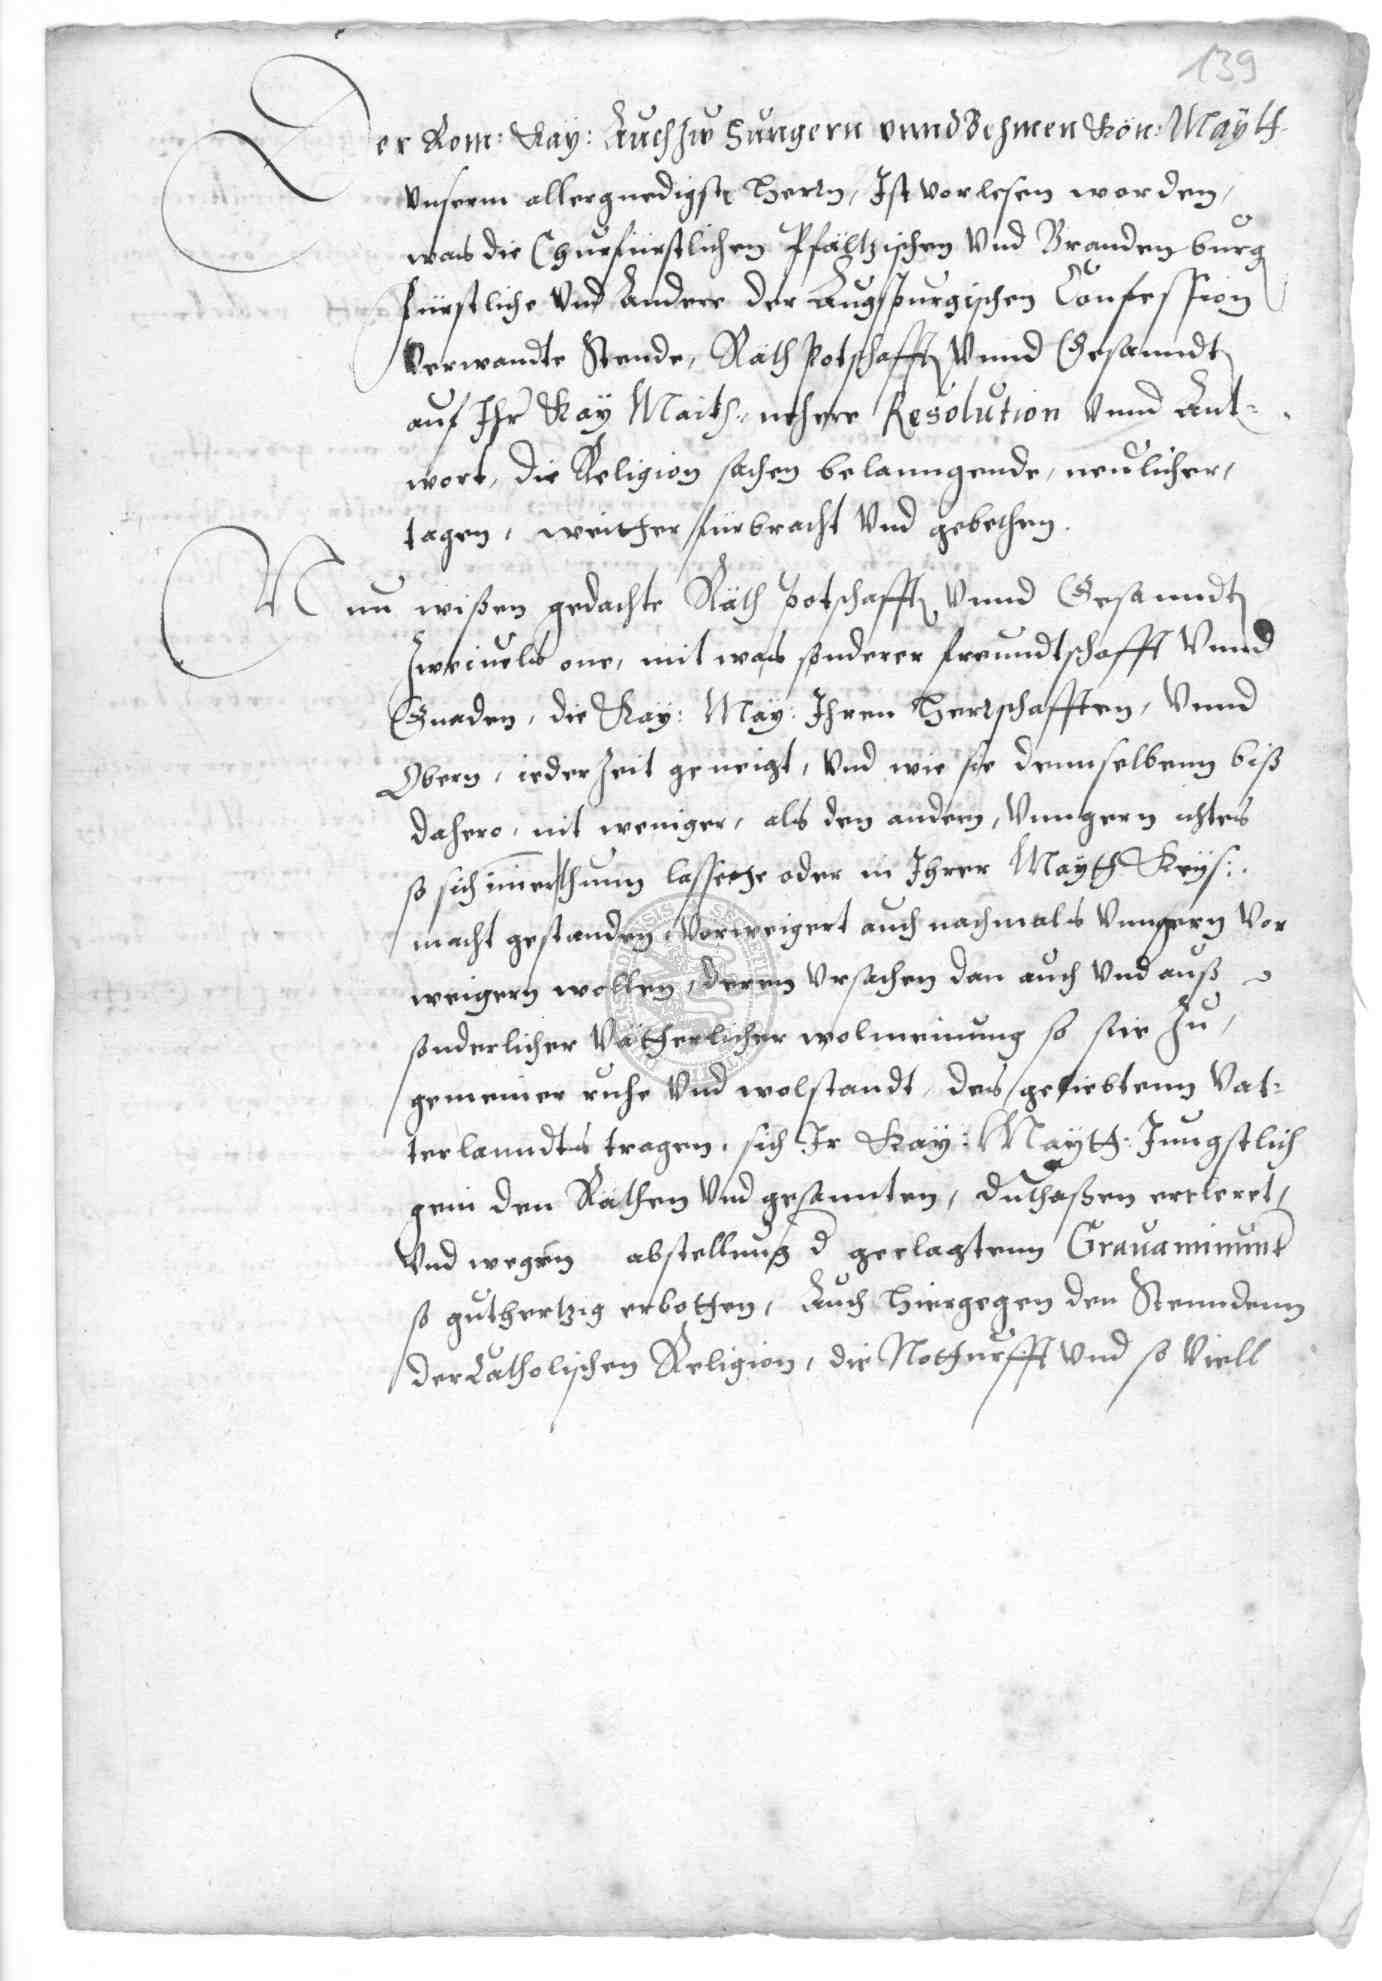 139
Der Rom: Kay: Auch zw Hungern vnnd Behmen Kön: Maÿtt
Vnserm allergnedigstē Herrn, Ist vorlesen worden,
was die Churfürstlichen Pfältzischen Vnd Brandenburg
fürstliche Vnd Andere der Augspurgischen Confession
Verwandte Stende, Räth Potschafften Vnnd Gesanndten
auf Ihr Kaÿ Maith: nehere Resolution Vnnd Ant=
wort, die Religion sachen belanngende, neulicher,
tagen, weitter fürbracht Vnd gebethen.
Nun wißen gedachte Räth Potschafften Vnnd Gesanndten
Zweiuels one, mit was sonderer freundtschafft Vnnd
Gnaden, die Kay: May: Ihren Herrschafften, Vnnd
Obern, ieder Zeit geneigt, Vnd wie sie dennselbenn biß
dahero, nit weniger, als den andern, Vnngern ichtes
so sich imer thunn lassen oder in Ihrer Maÿtt Keÿs:
macht gestanden, Vorweigert auch nachmals Vnngern Vor
weigern wollen, deren Vrsachen dan auch Vnd auß
sonderlicher Vätterlicher wolmeinung so sie Zu,
gemeiner ruhe Vnd wolstandt, des geliebtenn Vat=
terlanndts tragen, sich Ir Kaÿ: Maÿtt: Jungstlich
gein den Räthen Vnd gesannten, duthaßen ercleret,
Vnd wegen abstellung d geclagtenn Grauaminum
so guthertzig erbotten, Auch Hiergegen den Stenndenn
der Catholischen Religion, die Notturfft Vnd so Viell